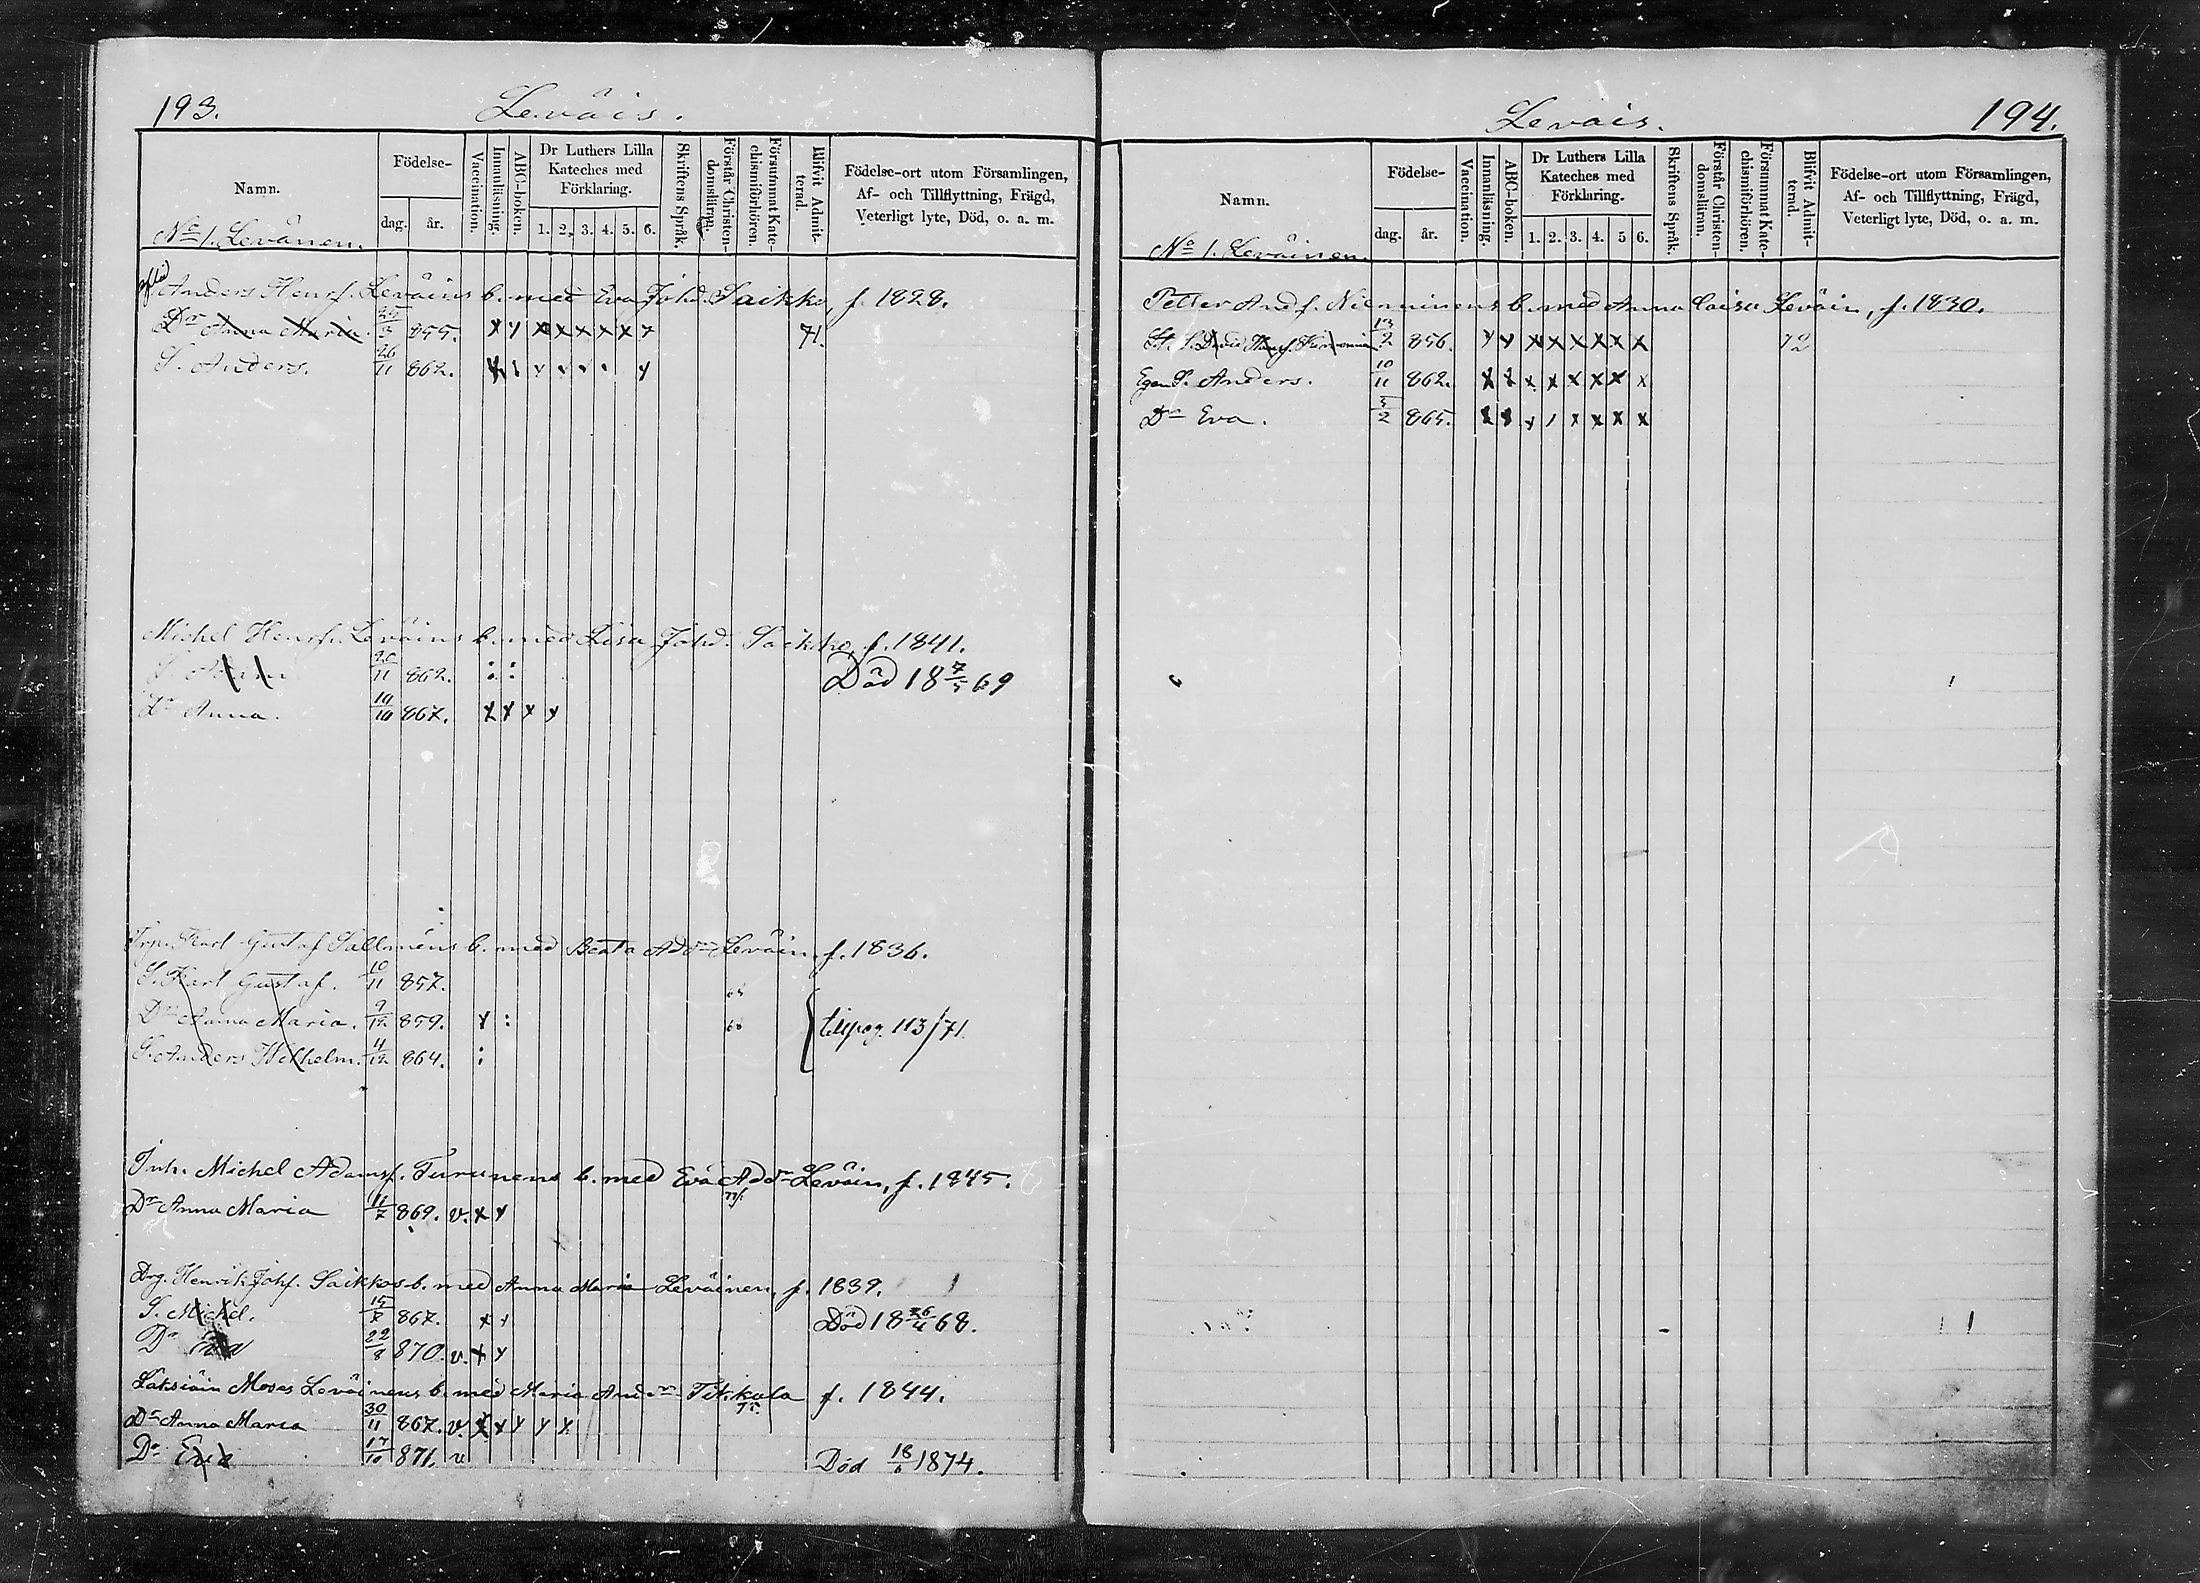 193.
Leväis.
Namn.
Födelse-
dag. år.
Vaccination.
Innanläsning.
ABC-boken.
Dr Luthers Lilla Kateches med Förklaring.
1. 2. 3. 4. 5. 6.
Skriftens Språk.
Förstår Christendomsläran.
Försummat Katechismiförhören.
Blifvit Admitterad.
Födelse-ort utom Församlingen,
Af- och Tillflyttning, Frägd,
Veterligt lyte, Död, o. a. m.
No 1. Levänen.
Anders Henrs. Leväins b. med Eva Johd. Saikko, f. 1828.
Dr Anna Maria. 855. x y x x x x x x 71.
S. Anders. 26/11 862.
Michel Henrs. Leväins b. med Lisa Johd. Saikko, f. 1841.
S. 20/11 862. : : Död 18 7/5 69
Dr Anna. 10/10 867. x x x y
Karl Gustaf Sallmèns b. med Beata Add:r Leväin, f. 1836.
S. Karl Gustaf. 10/11 857.
Dr Anna Maria. 9/12 859. y : till pag. 113/71.
S. Anders Wilhelm. 4/12 864. :
Inh. Michel Adamss. Turunens b. med Eva Add:r Leväin, f. 1845.
Dr Anna Maria 11/7 869. v. x y
Drg. Henrik Johs. Saikkos b. med Anna Maria Leväinen, f. 1839.
S. Michel. 867. x y Död 18 26/4 68.
Dr 22/8 870. v. x y
Moses Leväinens b. med Maria And:r Tikkala f. 1844.
75.
Dr Anna Maria 30/11 867. v. x x y y x
Dr Eva 17/10 871. v Död 18/6 1874.
Leväis.
194.
Namn.
Födelse-
dag. år.
Vaccination.
Innanläsning.
ABC-boken.
Dr Luthers Lilla Kateches med Förklaring.
1. 2. 3. 4. 5 6.
Skriftens Språk.
Förstår Christendomsläran.
Försummat Katechismiförhören.
Blifvit Admitterad.
Födelse-ort utom Församlingen,
Af- och Tillflyttning, Frägd,
Veterligt lyte, Död, o. a. m.
No 1. Leväinen.
Petter Ands. Nieminens b. med Anna Caisa Leväin, f. 1830.
St. S. David 856. y y x x x x x x 72
Egen S. Anders. 10/11 862. x x x x x x x x
Dr Eva. 5/2 865. x x y 1 x x x x